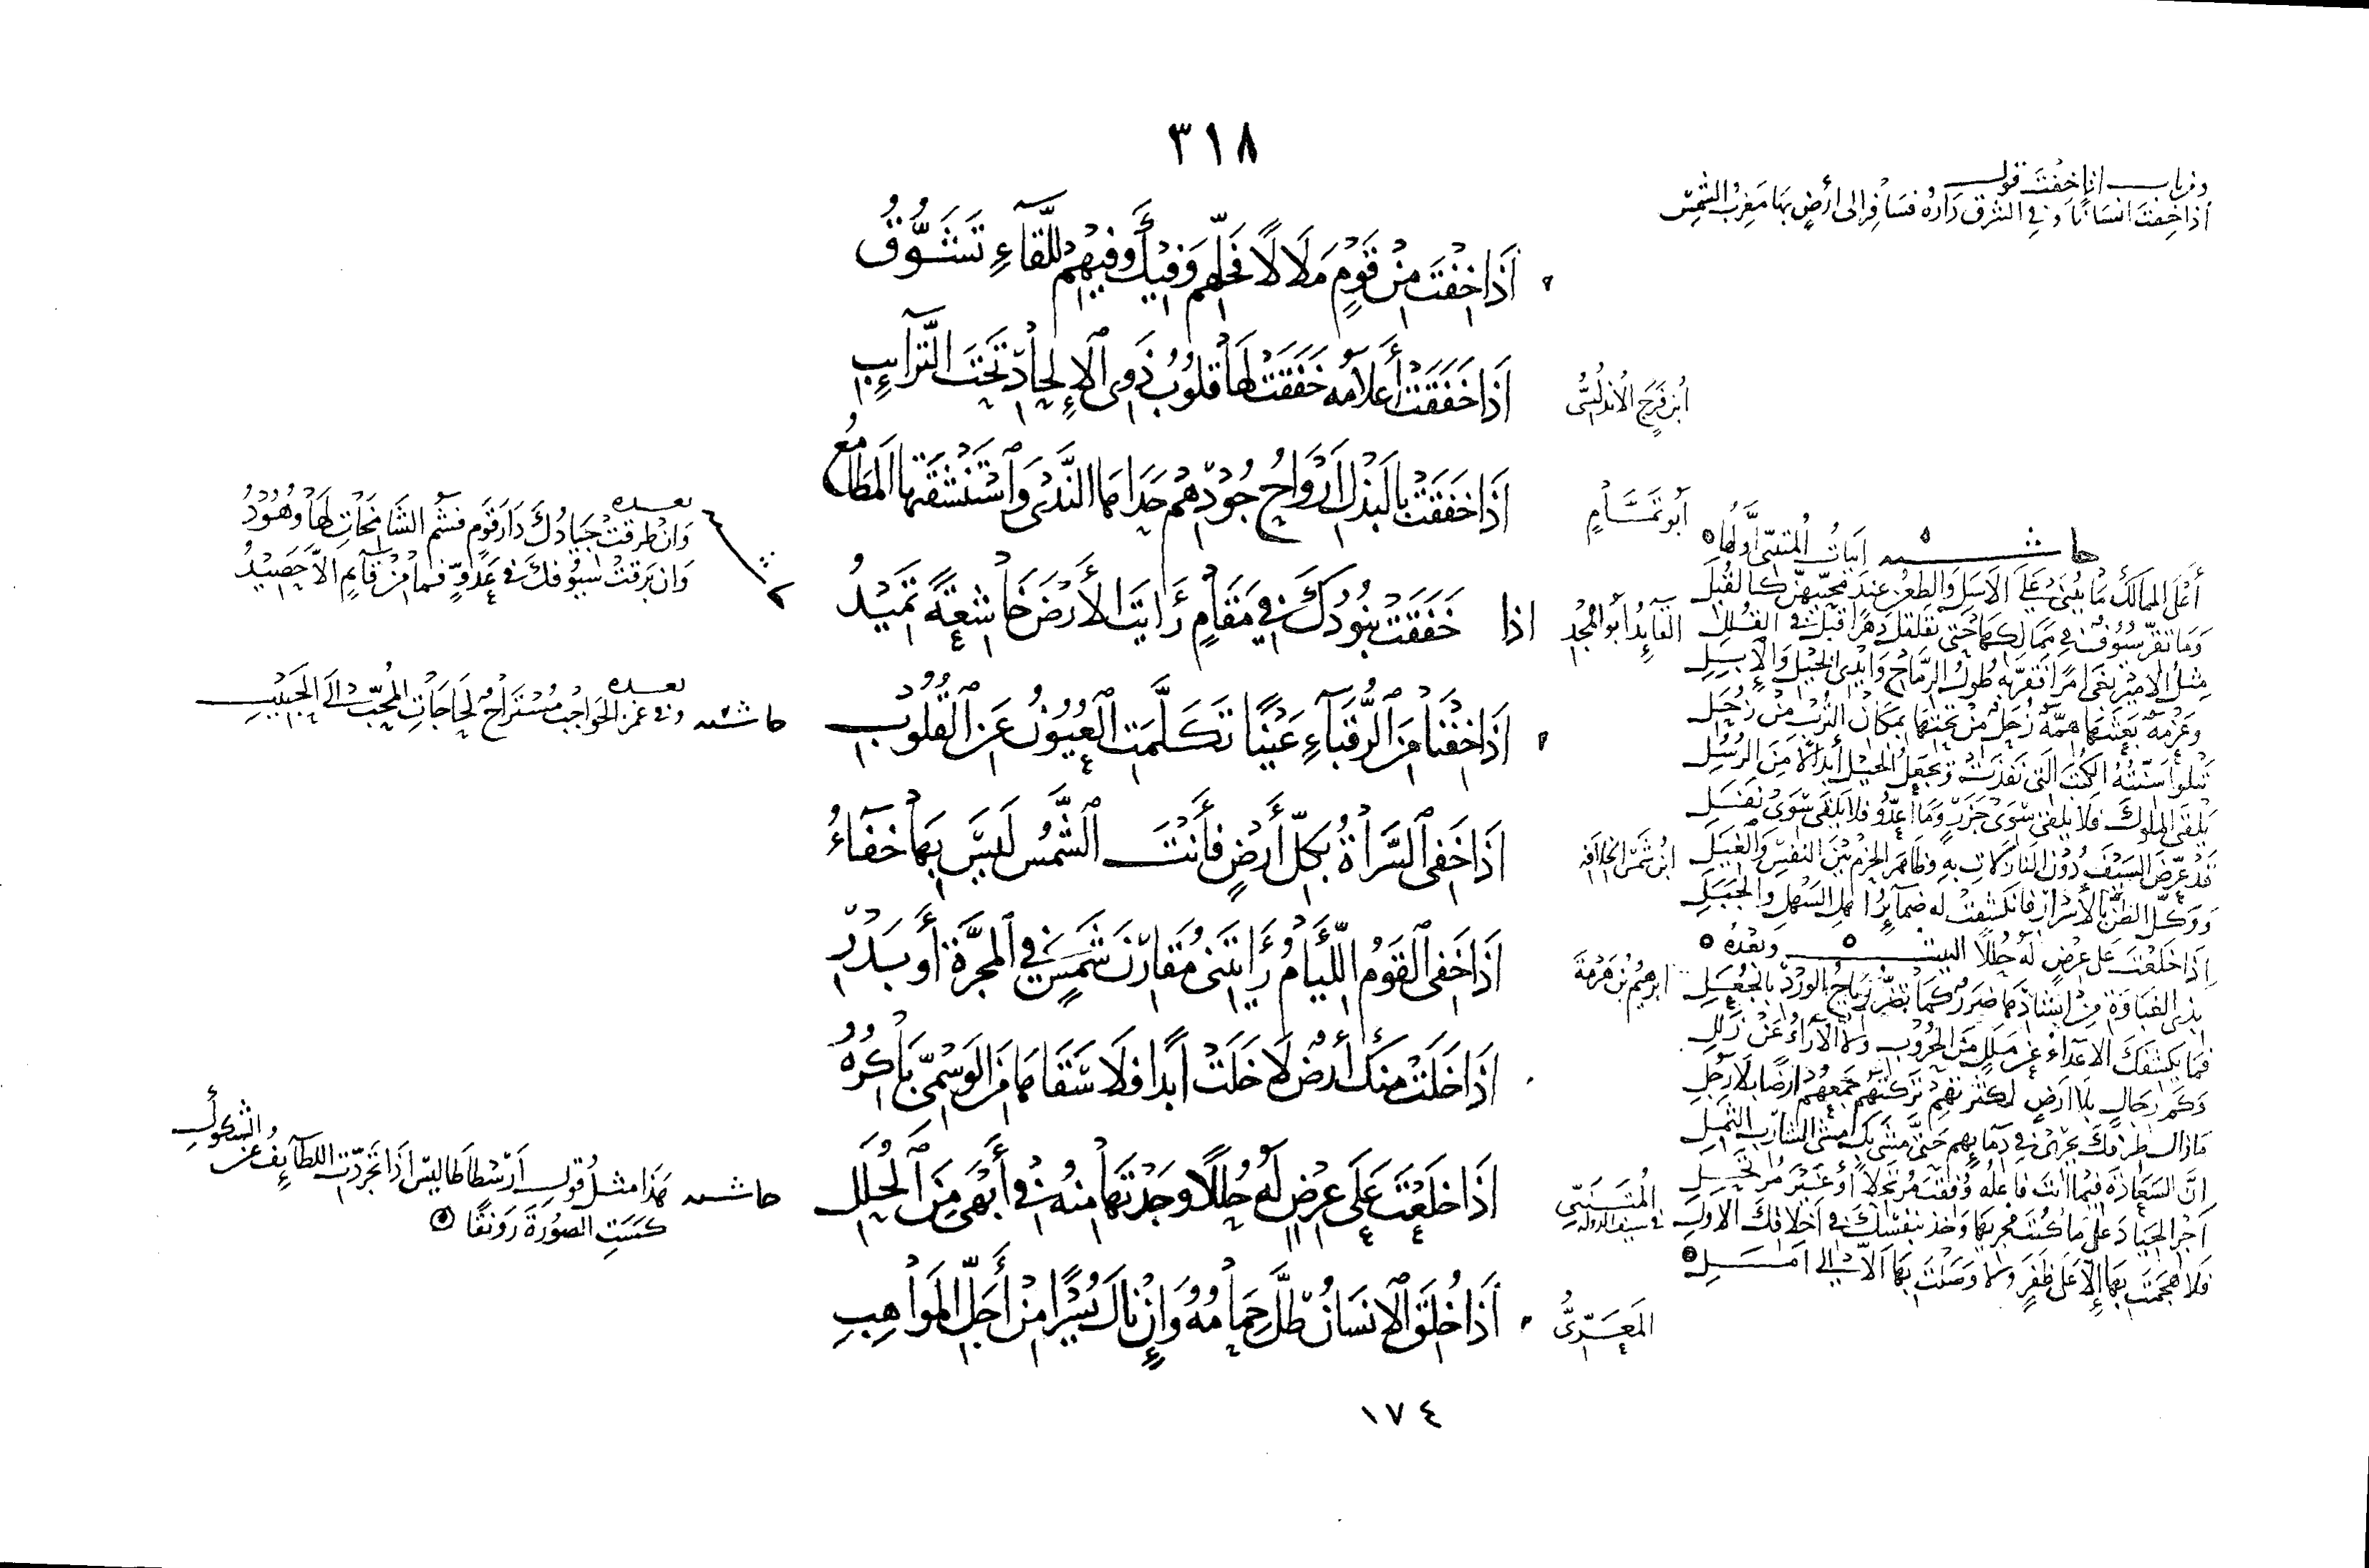 ٣١٨
وفي باب اذا خفت قول
اذا خفت انسانا وفي الشرق داره فسافر الى أرض بها مغرب الشمس
اذا خفت من قوم ملالا فخلهم وفيك وفيهم للقاء تشوق
ابن فرج الاندلسي
اذا خفقت أعلامه خفقت لها قلوب ذوى الإلحاد تحت الترائب
أبو تمام
اذا خفقت بالبذل ارواح جودهم حداها الندى واستنشقتها المطامع
القايد أبو المجد
اذا خفقت بنودك في مقام رأيت الأرض خاشعة تميد
بعده
وان طرقت جيادك دار قوم فشم الشامخات لها وهود
وان برقت سيوفك في عدو فما من قايم الا حصيد
اذا خفنا من الرقباء عينا تكلمت العيون عن القلوب
حاشية
بعده
وفي غمز الحواجب مستراح لحاجات المحب الى الحبيب
ابن شمس الخلافة
اذا خفى السراة بكل أرض فأنت الشمس ليس بها خفاء
ابرهيم بن هرمة
اذا خفى القوم اللئام رأيتنى مقارن شمس في المجرة أو بدر
اذا خلت منك أرض لا خلت أبدا فلا سقاها من الوسمى باكره
المتنبي
في سيف الدولة
اذا خلعت على عرض له حللا وجدتها منه في أبهى من الحلل
حاشية
هذا مثل قول أرسطاطاليس اذا تجردت اللطايف عن الشكول
كست الصورة رونقا
المعرى
اذا خلق الانسان ظل حمامه وإن نال يسرا من أجل المواهب
حاشية ابيات المتنبي أولها
أعلى الممالك ما يبنى على الاسل والطعن عند محبيهن كالقبل
وما تقر سيوف في ممالكها حتى تقلقل دهرا قبل في القلل
مثل الامير بغى امرا فقربه طول الرماح وايدى الخيل والابل
وعزمة بعثتها همة زحل من تحتها بمكان الترب من زحل
تتلو أسنته الكتب التي نفذت وتجعل الخيل أبدالا من الرسل
يلقى الملوك فلا يلقى سوى جزر وما أعدو فلا يلقى سوى نفل
ووكل الظن بالأسرار فانكشفت له ضمائر اهل السهل والجبل
اذا خلعت على عرض له حللا البيت وبعده
بذى الغباوة من انشادها ضرر كما تضر رياح الورد بالجعل
فما يكشفك الاعداء عن ملل من الحروب ولا الآراء عن زلل
وكم رجال بلا ارض لكثرتهم تركت جمعهم ارضا بلا رجل
مازال طرفك يجرى في دمايهم حتى مشى بك مشى الشارب الثمل
ان السعادة فيما انت فاعله وفقت مرتحلا أو غير مرتحل
أجر الجياد على ما كنت مجريها وخذ بنفسك في أخلاقك الاول
فلا هجمت بها إلا على ظفر ولا وصلت بها الا الى امل
١٧٤